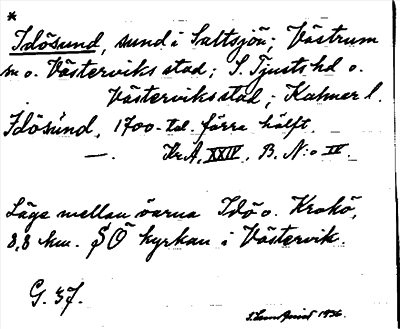 *
Idösund, sund i Saltsjön; Västrum
m o. Västerviks stad; S. Tjusts hd o.
Västerviks stad; Kalmar l.
Idösund, 1700-tal. förra hälft.
—. Kr A, XXIV, B. N:o IV.
Läge mellan öarna Idö o. Krokö,
8,8 km. SÖ kyrkan i Västervik.
G. 37.
1936.